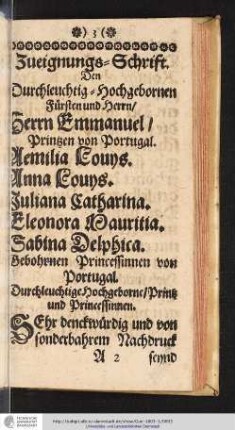 )3(
Zueignungs-Schrift.
Den
Durchleuchtig-Hochgebornen
Fürsten und Herrn/
Herrn Emmanuel/
Printzen von Portugal.
Aemilia Louys.
Anna Louys.
Juliana Catharina.
Eleonora Mauritia.
Sabina Delphica.
Gebohrnen Princessinnen von
Portugal.
Durchleuchtige Hochgeborne/Printz
und Princessinnen.
SEhr denckwürdig und von
sonderbahrem Nachdruck
A 2 seynd